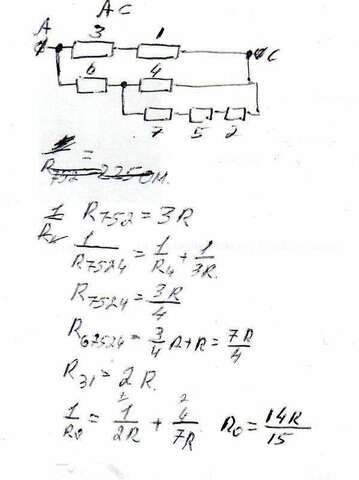 AC
A 3 1 C
6 4
7 5 2
R752 = 225 Ом.
R752 = 3R
1/R7524 = 1/R4 + 1/3R.
R7524 = 3R/4
R67524 = 3/4 R + R = 7R/4
R31 = 2R.
1/R0 = 1/2R + 4/7R R0 = 14R/15